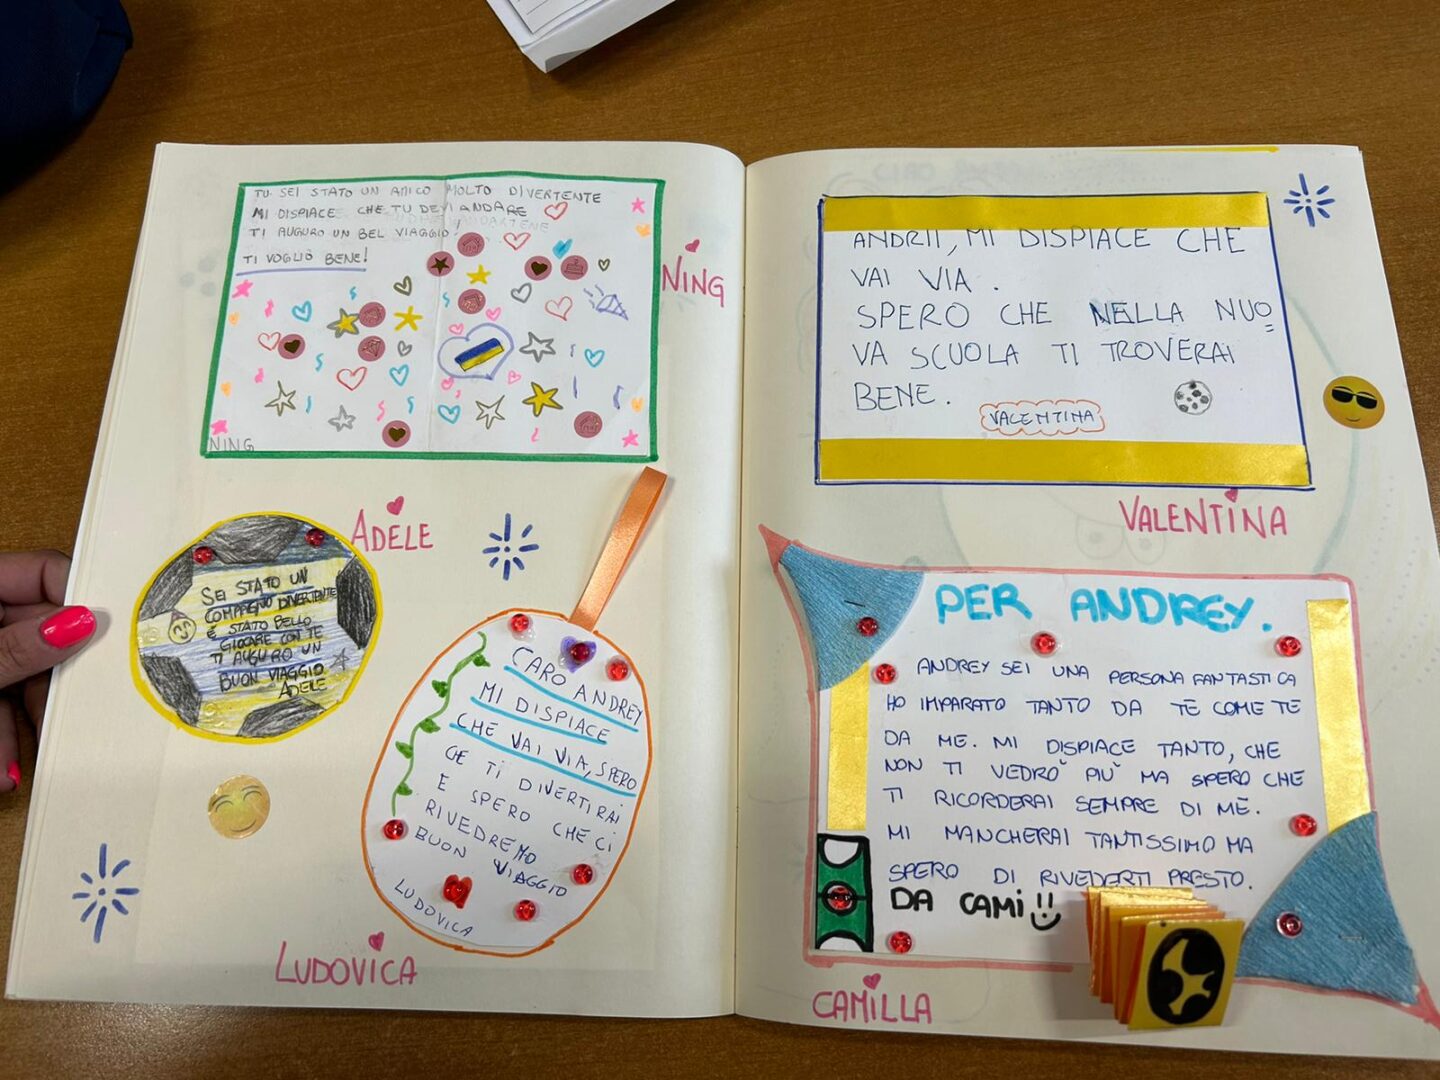 TU SEI STATO UN AMICO MOLTO DIVERTENTE
MI DISPIACE CHE TU DEVI ANDARE
TI AUGURO UN BEL VIAGGIO!
TI VOGLIO BENE!
NING
NING
ADELE
SEI STATO UN
COMPAGNO DIVERTENTE
É STATO BELLO
GIOCARE CON TE
TI AUGURO UN
BUON VIAGGIO
ADELE
CARO ANDREY
MI DISPIACE
CHE VAI VIA, SPERO
CE TI DIVERTIRAI
E SPERO CHE CI
RIVEDREMO
BUON VIAGGIO
LUDOVICA
LUDOVICA
ANDRII, MI DISPIACE CHE
VAI VIA.
SPERO CHE NELLA NUO
VA SCUOLA TI TROVERAI
BENE.
VALENTINA
VALENTINA
PER ANDREY.
ANDREY SEI UNA PERSONA FANTASTICA
HO IMPARATO TANTO DA TE COME TE
DA ME. MI DISPIACE TANTO, CHE
NON TI VEDRO' PIU' MA SPERO CHE
TI RICORDERAI SEMPRE DI ME.
MI MANCHERAI TANTISSIMO MA
SPERO DI RIVEDERTI PRESTO.
DA CAMI
CAMILLA